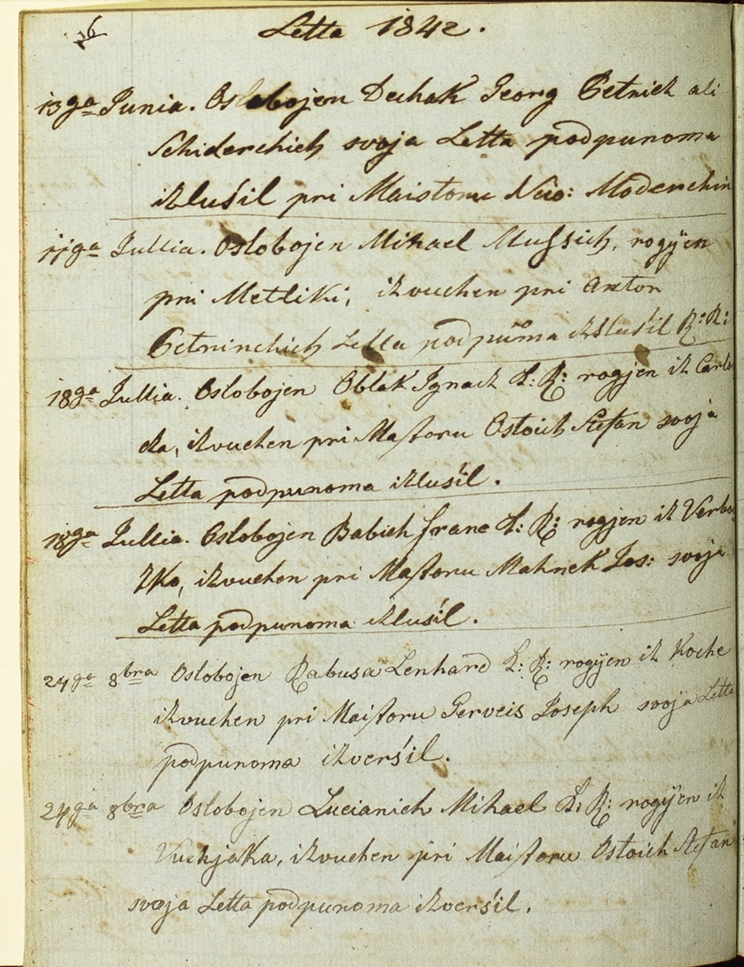 16
Letta 1842.
13ga Junia. Oslobojen Dechak Georg Petrich ali
Schiderchich svoja Letta podpunoma
izlusil pri Maistoru Nico: Moderchin
11ga Jullia. Oslobojen Mihael Mussich, rogÿen
pri Metliki, izvuchen pri Anton
Petrinchich Letta podpunoma izslusil R: R:
18ga Jullia. Oslobojen Oblak Ignatz L: R: rogjen iz Carlo
, izvuchen pri Mastoru Ostoich Stefan svoja
Letta podpunoma izlusil.
18ga Jullia. Oslobojen Babich Franc L: R: rogjen iz Verbo
zko, izvuchen pri Mastoru Mahnek Jos: svoja
Letta podpunoma izlusil.
24ga 8bra Oslobojen Rabusa Lenhard L: R: rogÿen iz Koche
izvuchen pri Maistoru Gerveis Joseph svoja Letta
podpunoma izversil.
24ga 8bra Oslobojen Lucianich Mihael L: R: rogÿen iz
Vuchjaka, izvuchen pri Maistoru Ostoich Stefan
svoja Letta podpunoma izversil.